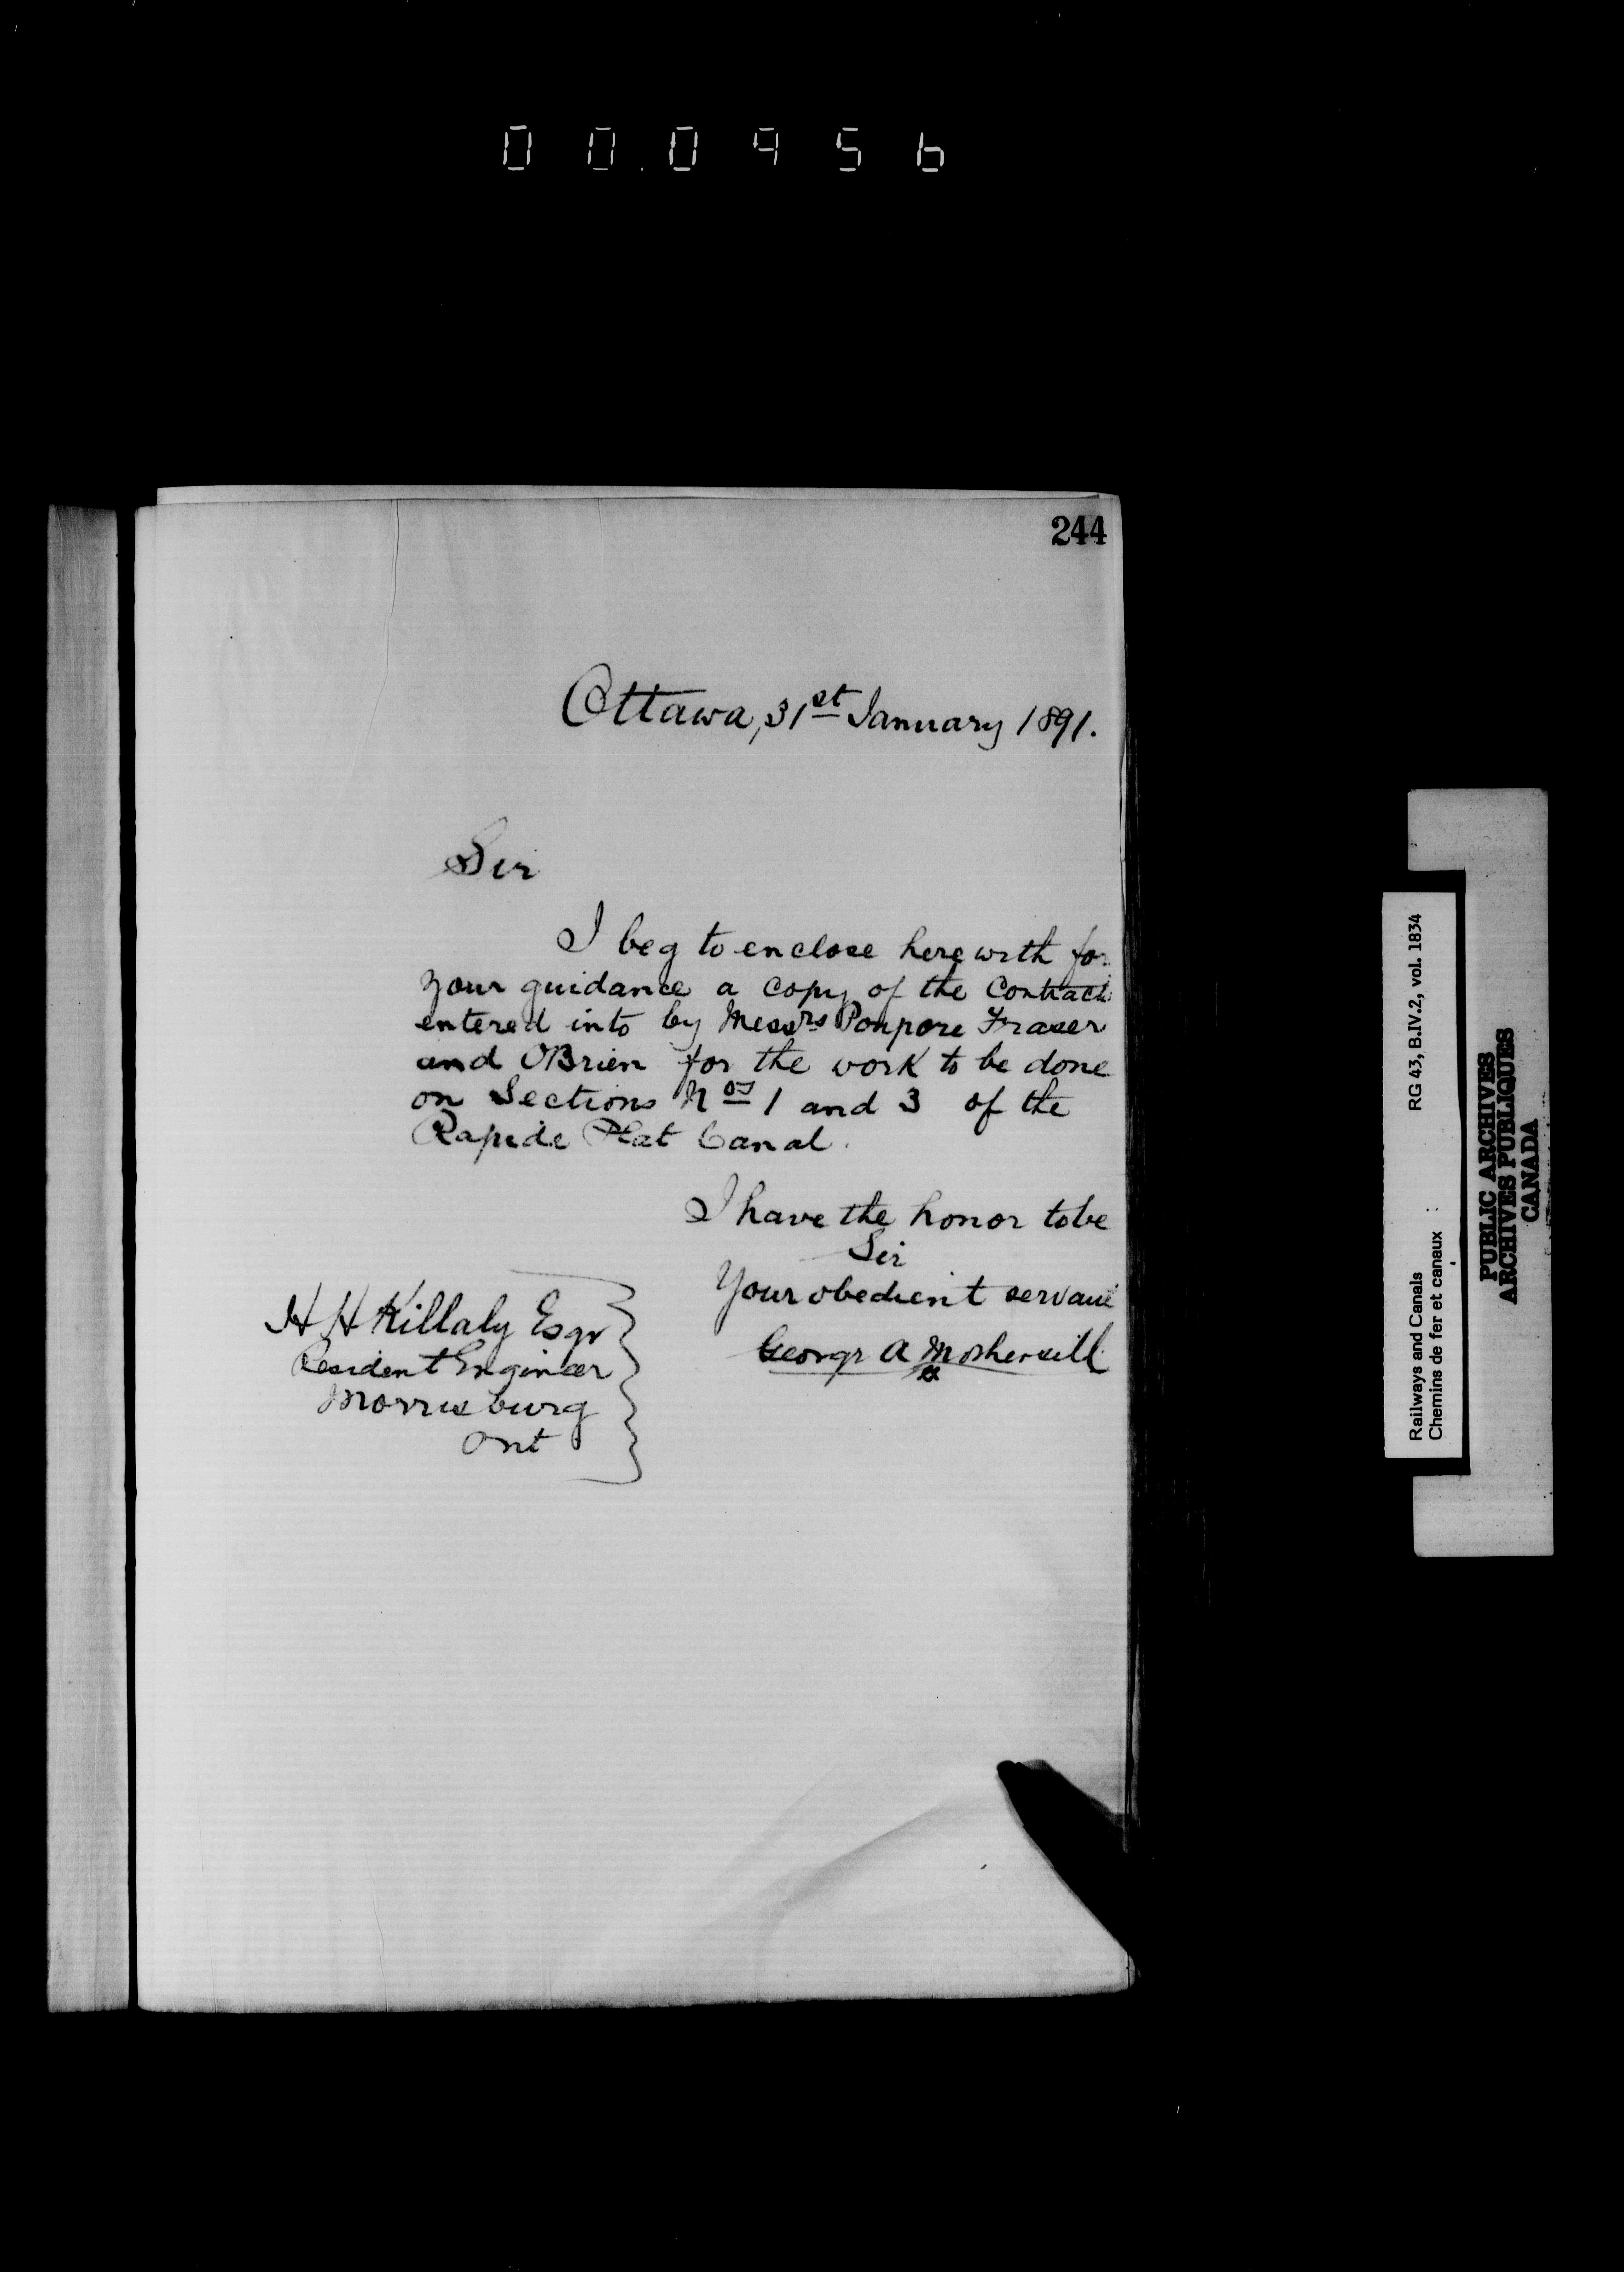 00.0956
244
Ottawa, 31st January 1891.
Sir
I beg to enclose herewith for
your guidance a copy of the Contract
entered into by Messrs Poupore Fraser
and OBrien for the work to be done
on Sections Nos 1 and 3 of the
Rapide Plat Canal.
I have the honor to be
Sir
Your obedient servant
George A Mothersill
H H Killaly Esqr
Resident Engineer
Morrisburg
Ont
Railways and Canals RG 43, B.IV.2, vol. 1834
Chemins de fer et canaux :
PUBLIC ARCHIVES
ARCHIVES PUBLIQUES
CANADA